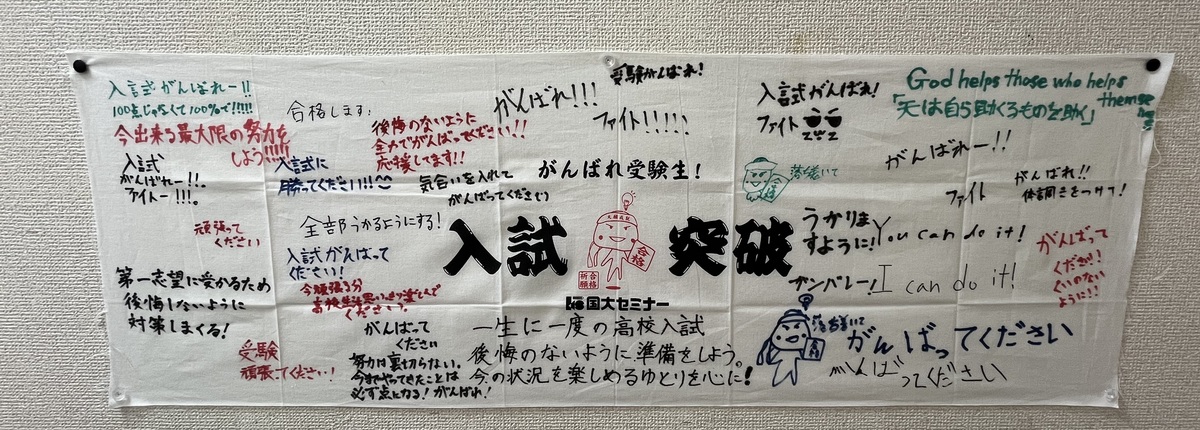 入試がんばれー!!
100点じゃなくて100%で!!!!!
今出来る最大限の努力を
しよう!!!!!
入試
がんばれー!!.
ファイトー!!!.
頑張って
ください
第一志望に受かるため
後悔しないように
対策しまくる!
受験
頑張ってください!
合格します!
後悔のないように
全力でがんばってください!!
応援してます!!
入試に
勝ってください!!
気合いを入れて
がんばってください
全部うかるようにする!
入試がんばって
ください!
今頑張る分
高校生活思いっきり楽しんで
ください。
がんばって
ください
努力は裏切らない。
今までやってきたことは
必ず点になる!がんばれ!
受験がんばれ!
がんばれ!!!
ファイト!!!!!
がんばれ受験生!
入試 突破
合格
祈合
願格
国大セミナー
一生に一度の高校入試
後悔のないように準備をしよう。
今の状況を楽しめるゆとりを心に!
入試がんばれ!
ファイト
落ち着いて
God helps those who helps
themselves
「天は自ら助くるものを助く」
がんばれー!!
ファイト
がんばれ!!
体調に気をつけて!
うかりま
すように!
You can do it!
ガンバレー!
I can do it!
がんばって
ください!
くいのない
ように!!
落ち着いて
がんばってください
がんばってください